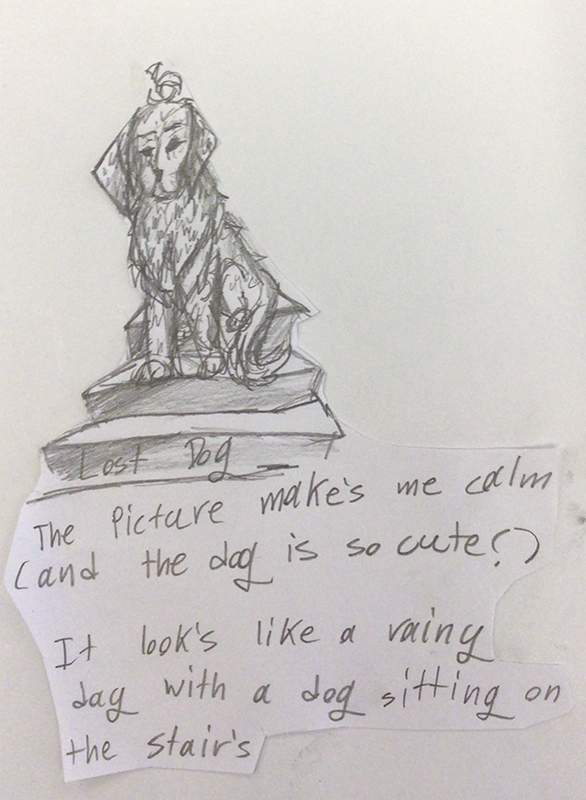 Lost Dog
The Picture make's me calm
(and the dog is so cute!)
It look's like a rainy
day with a dog sitting on
the stair's